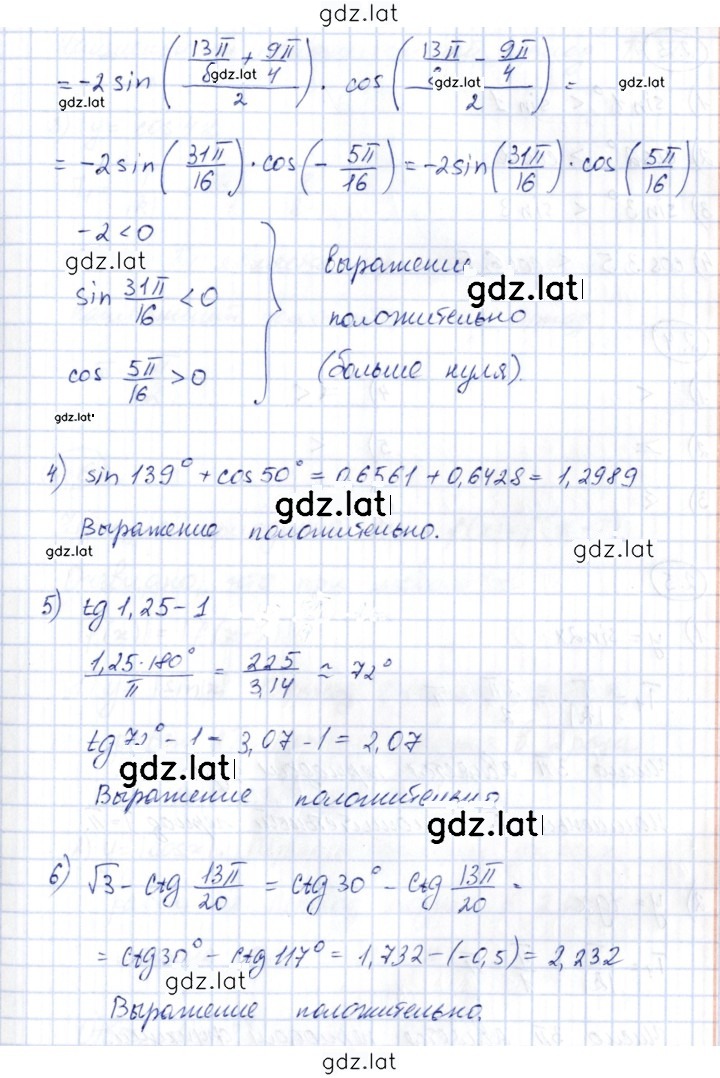 gdz.lat
= -2 sin ( (13π/8 + 9π/4) / 2 ) · cos ( (13π/8 - 9π/4) / 2 ) =
gdz.lat gdz.lat gdz.lat gdz.lat
= -2 sin (31π/16) · cos (- 5π/16) = -2 sin (31π/16) · cos (5π/16)
-2 < 0
gdz.lat
sin 31π/16 < 0
cos 5π/16 > 0
выражение
gdz.lat
положительно
(больше нуля).
gdz.lat
4) sin 139° + cos 50° = 0,6561 + 0,6428 = 1,2989
gdz.lat
Выражение положительно.
gdz.lat gdz.lat
5) tg 1,25 - 1
1,25·180°/π = 225/3,14 ≈ 72°
tg 72° - 1 = 3,07 - 1 = 2,07
gdz.lat
Выражение положительно
gdz.lat
6) √3 - ctg 13π/20 = ctg 30° - ctg 13π/20 =
= ctg 30° - ctg 117° = 1,732 - (-0,5) = 2,232
gdz.lat
Выражение положительно.
gdz.lat